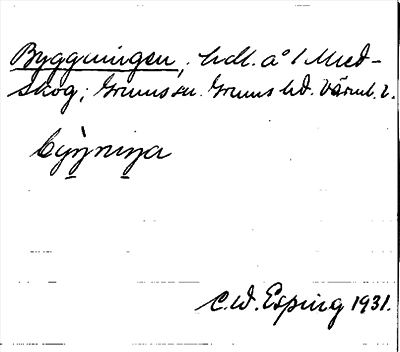 Byggningen, hdl. å i Med-
skog; Grums sn. Grums hd. Värml. l.
byŋniŋa
C.W. Esping 1931.